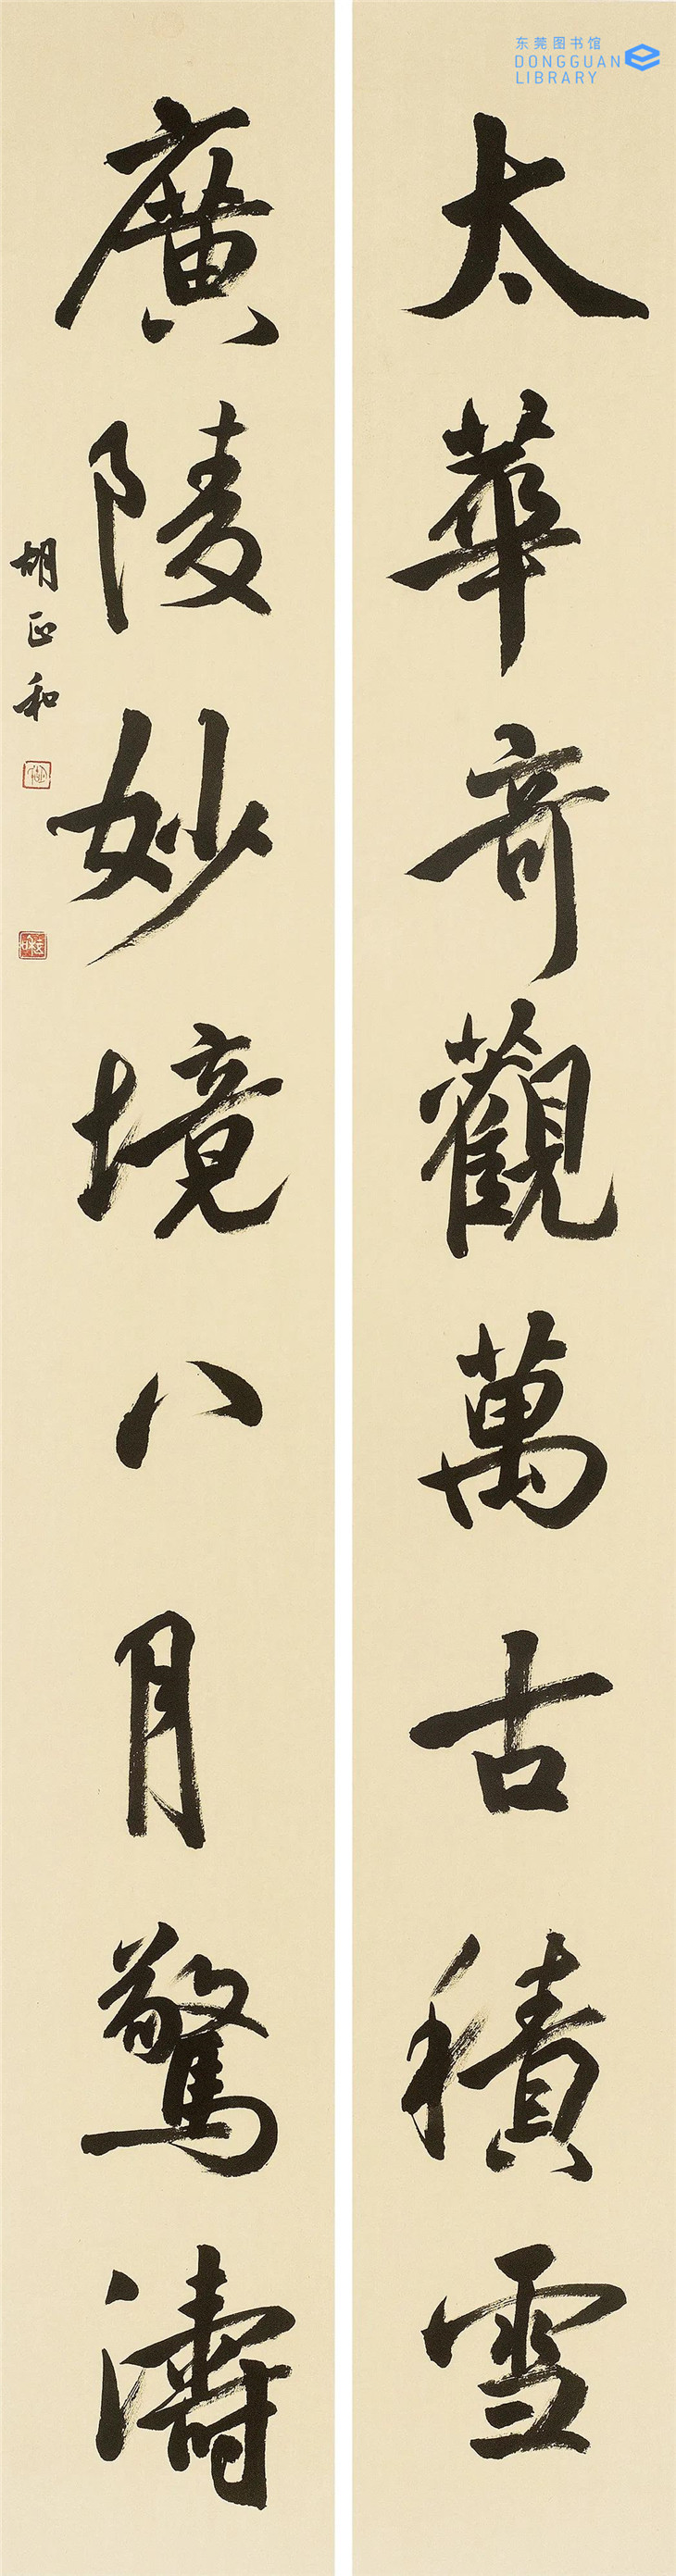 东莞图书馆
DONGGUAN
LIBRARY
太華奇觀萬古積雪
廣陵妙境八月驚濤
胡正和